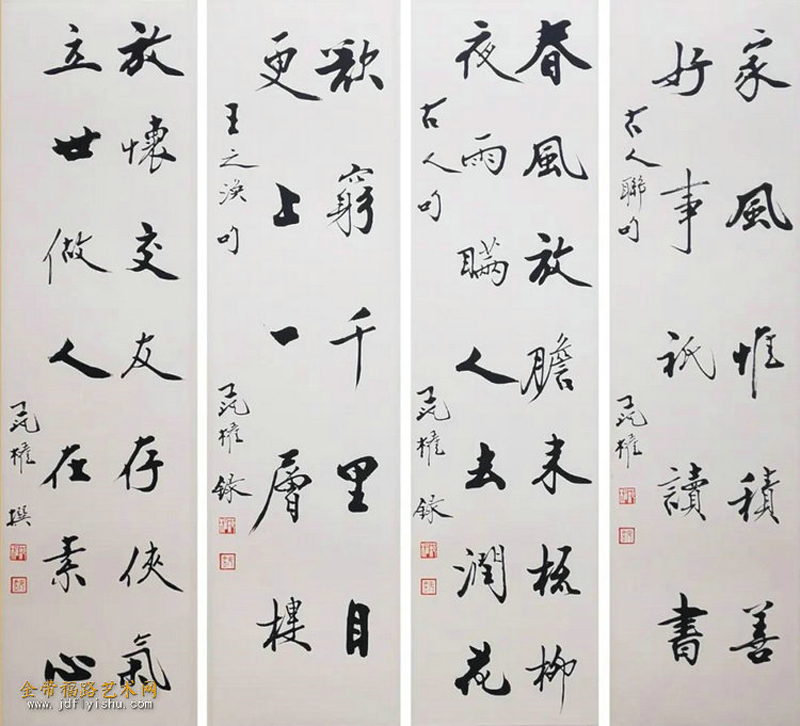 家風惟積善
好事祇讀書
古人聯句
春風放膽來梳柳
夜雨瞞人去潤花
古人句
錄
欲窮千里目
更上一層樓
王之渙句
錄
放懷交友存俠氣
立世做人在素心
撰
金带福路艺术网
www.jdflyishu.com